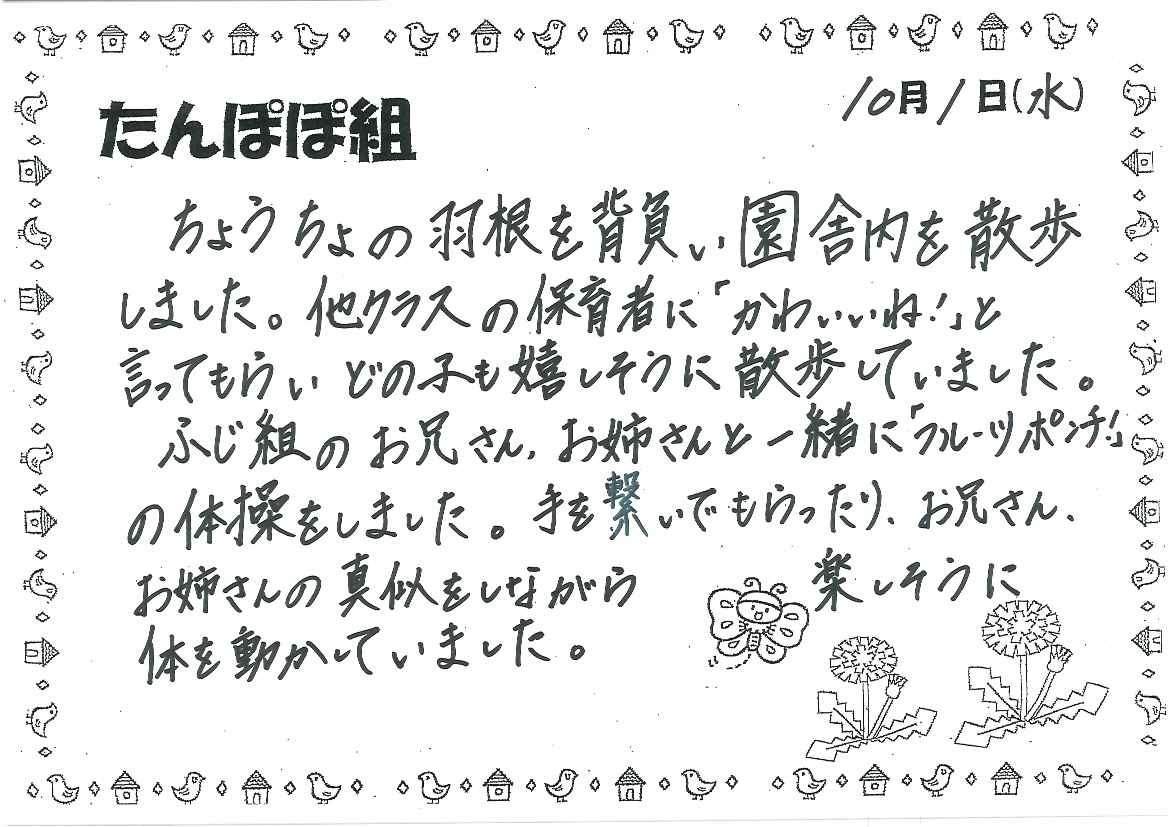 10月1日(水)
たんぽぽ組
ちょうちょの羽根を背負い園舎内を散歩
しました。他クラスの保育者に「かわいいね!」と
言ってもらいどの子も嬉しそうに散歩していました。
ふじ組のお兄さん、お姉さんと一緒に「フルーツポンチ!」
の体操をしました。手を繋いでもらったり、お兄さん、
お姉さんの真似をしながら 楽しそうに
体を動かしていました。